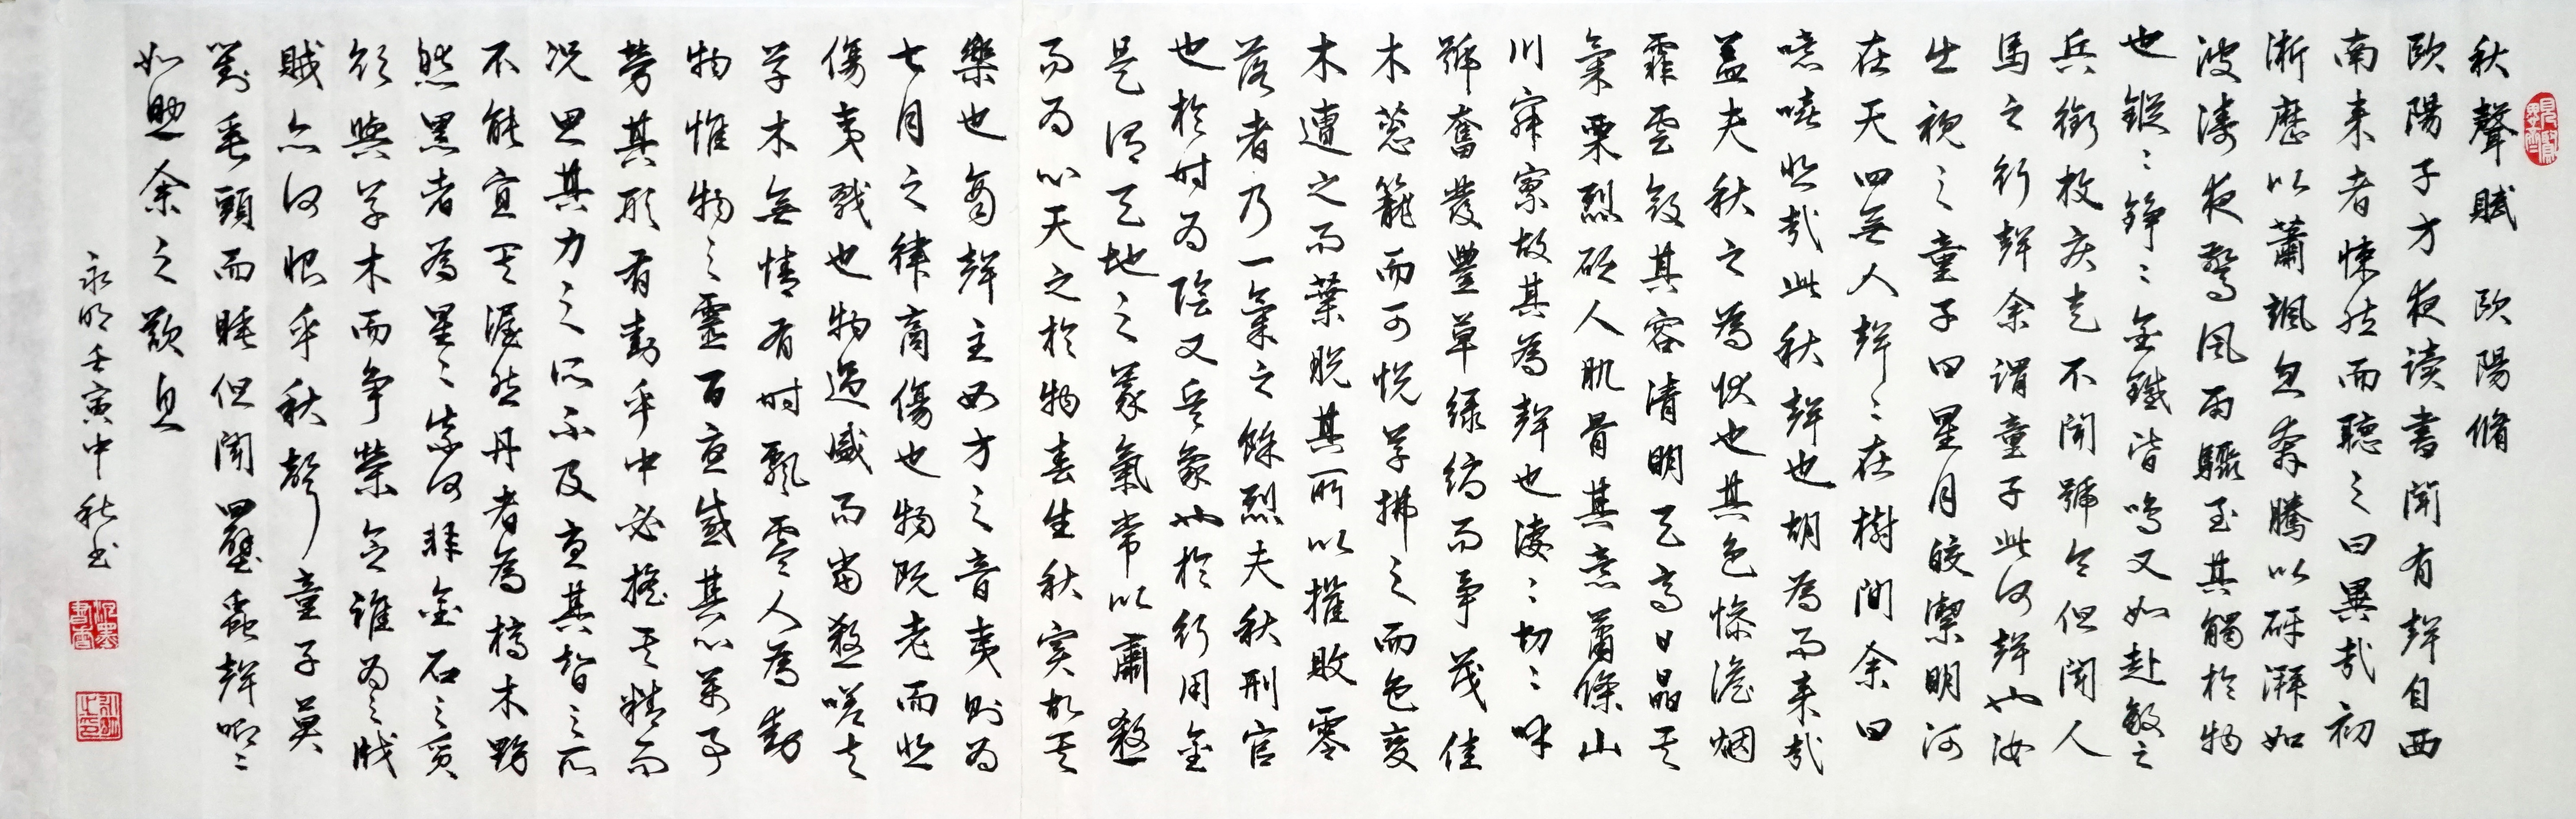 秋聲賦 歐陽脩
歐陽子方夜读書聞有聲自西
南来者悚然而聽之曰異哉初
淅瀝以蕭颯忽奔騰以砰湃如
波濤夜驚风雨驟至其觸於物
也鏦〻錚〻金鐵皆鳴又如赴敵之
兵銜枚疾走不聞號令但聞人
馬之行聲余謂童子此何聲也汝
出視之童子曰星月皎潔明河
在天四無人聲〻在樹間余曰
噫嘻悲哉此秋聲也胡為而来哉
蓋夫秋之為状也其色惨澹烟
霏雲斂其容清明天高日晶其
氣栗烈砭人肌骨其意蕭條山
川寂寥故其為聲也凄〻切〻呼
號奮發豐草绿縟而争茂佳
木葱籠而可悦草拂之而色变
木遭之而葉脱其所以摧敗零
落者乃一氣之餘烈夫秋刑官
也於时为陰又兵象也於行用金
是謂天地之義氣常以肅殺
而为心天之於物春生秋实故其
樂也商聲主西方之音夷則为
七月之律商傷也物既老而悲
傷夷戮也物過盛而當殺嗟夫
草木無情有时飘零人為動
物惟物之靈百憂感其心萬事
勞其形有動乎中必摇其精而
况思其力之所不及憂其智之所
不能宜其渥然丹者為槁木黟
然黑者為星〻柰何非金石之質
欲與草木而争榮念誰为之戕
賊亦何恨乎秋聲童子莫
對垂頭而睡但聞四壁蟲聲唧〻
如助余之歎息
永明壬寅中秋书
沉墨書香